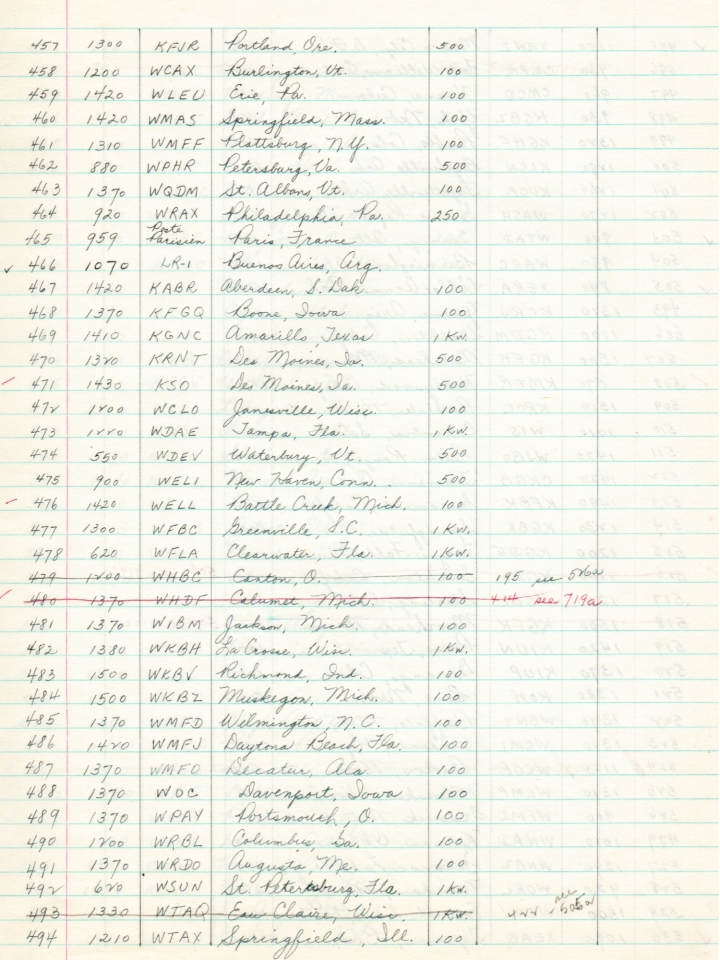 457 1300 KFJR Portland, Ore. 500
458 1200 WCAX Burlington, Vt. 100
459 1420 WLEU Erie, Pa. 100
460 1420 WMAS Springfield, Mass. 100
461 1310 WMFF Plattsburg, N.Y. 100
462 880 WPHR Petersburg, Va. 500
463 1370 WQDM St. Albans, Vt. 100
464 920 WRAX Philadelphia, Pa. 250
465 959 Poste Parisien Paris, France
✓ 466 1070 LR-1 Buenos Aires, Arg.
467 1420 KABR Aberdeen, S. Dak. 100
468 1370 KFGQ Boone, Iowa 100
469 1410 KGNC Amarillo, Texas 1 Kw.
470 1320 KRNT Des Moines, Ia. 500
471 1430 KSO Des Moines, Ia. 500
472 1200 WCLO Janesville, Wisc. 100
473 1220 WDAE Tampa, Fla. 1 Kw.
474 550 WDEV Waterbury, Vt. 500
475 900 WELI New Haven, Conn. 500
476 1420 WELL Battle Creek, Mich. 100
477 1300 WFBC Greenville, S.C. 1 Kw.
478 620 WFLA Clearwater, Fla. 1 Kw.
479 1200 WHBC Canton, O. 100 195 see 526a
480 1370 WHDF Calumet, Mich. 100 414 see 719a
481 1370 WIBM Jackson, Mich. 100
482 1380 WKBH La Crosse, Wisc. 1 Kw.
483 1500 WKBV Richmond, Ind. 100
484 1500 WKBZ Muskegon, Mich. 100
485 1370 WMFD Wilmington, N.C. 100
486 1420 WMFJ Daytona Beach, Fla. 100
487 1370 WMFO Decatur, Ala. 100
488 1370 WOC Davenport, Iowa 100
489 1370 WPAY Portsmouth, O. 100
490 1200 WRBL Columbus, Ga. 100
491 1370 WRDO Augusta, Me. 100
492 620 WSUN St. Petersburg, Fla. 1 Kw.
493 1330 WTAQ Eau Claire, Wisc. 1 Kw. 422 see 505a
494 1210 WTAX Springfield, Ill. 100